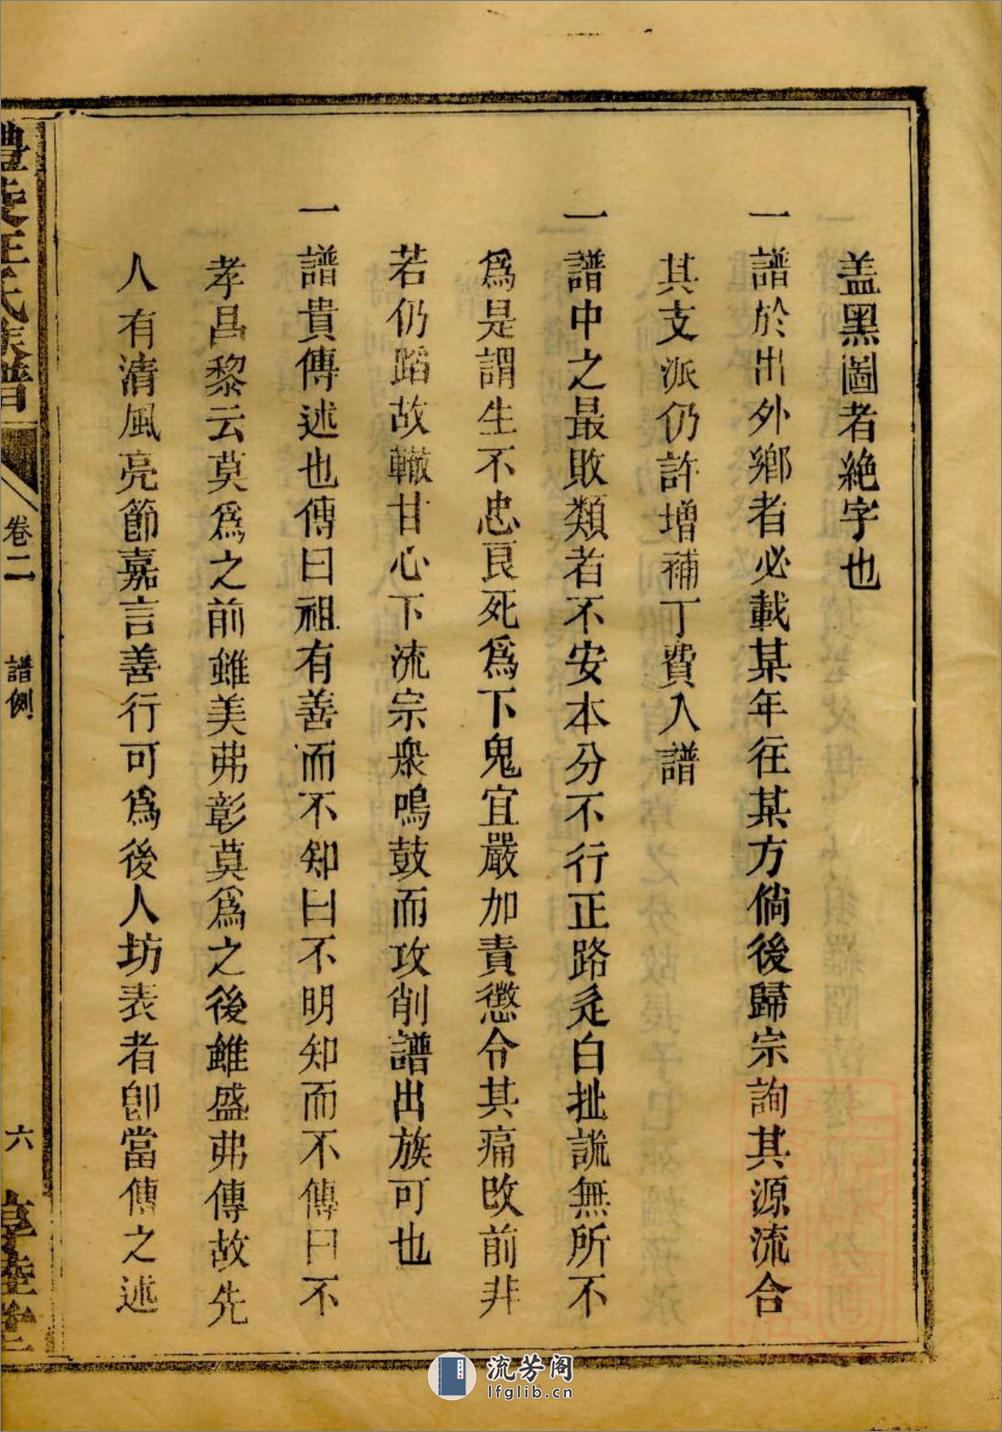 盖黑圖者絶字也
一譜於出外鄉者必載某年往某方倘後歸宗詢其源流合
其支派仍許增補丁費入譜
一譜中之最敗類者不安本分不行正路走白扯謊無所不
爲是謂生不忠良死爲下鬼宜嚴加責懲令其痛改前非
若仍蹈故轍甘心下流宗衆鳴鼓而攻削譜出族可也
一譜貴傳述也傳曰祖有善而不知曰不明知而不傳曰不
孝昌黎云莫爲之前雖美弗彰莫爲之後雖盛弗傳故先
人有清風亮節嘉言善行可爲後人坊表者卽當傳之述
醴陵汪氏族譜
卷二
譜例
六
敦睦堂
流芳阁
lfglib.cn